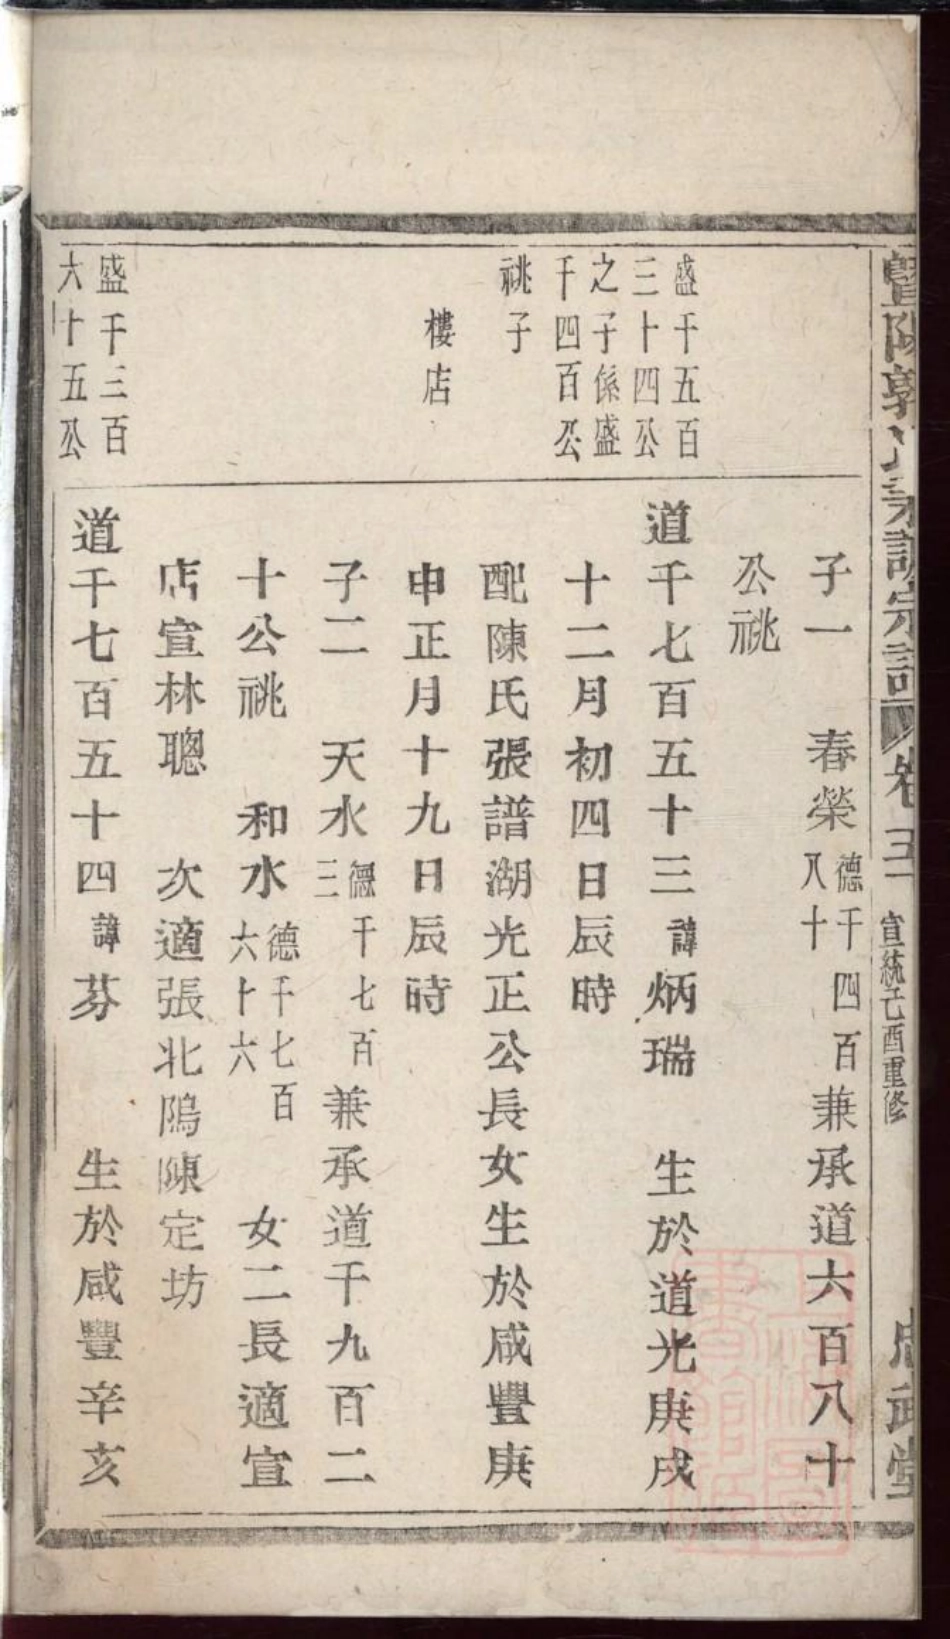 暨陽郭氏宗譜 卷三 宣統己酉重修
子一 春榮德千四百八十兼承道六百八十
公祧
盛千五百
三十四公
之子係盛
千四百公
祧子
道千七百五十三諱炳瑞 生於道光庚戌
十二月初四日辰時
配陳氏張譜湖光正公長女生於咸豐庚
樓店
申正月十九日辰時
子二 天水德千七百三兼承道千九百二
十公祧 和水德千七百六十六 女二長適宣
店宣林聰 次適張北隖陳定坊
盛千三百
六十五公
道千七百五十四諱芬 生於咸豐辛亥